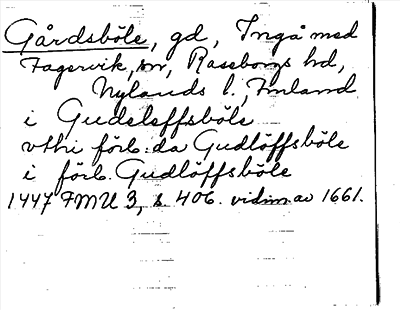 Gårdsböle, gd, Ingå med
Fagervik, sn, Raseborgs hd,
Nylands l., Finland
i Gudelsffsböle
vthi förb:da Gudlöffsböle
i förb. Gudlöffsböle
1447 FMU 3, s. 406. vidim. av 1661.